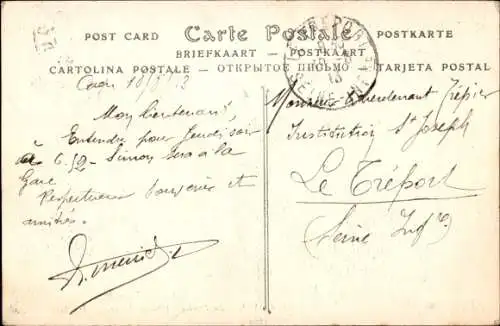 POST CARD
Carte Postale
POSTKARTE
BRIEFKAART — POSTKAART
CARTOLINA POSTALE — ОТКРЫТОЕ ПИСЬМО — TARJETA POSTAL
Mon lieutenant,
Entendu pour Jeudi soir
à 6.52 - Simon sera à la
Gare
Respectueux Souvenir et
amitiés.
Monsieur
Institution St Joseph
Le Tréport
Seine Infre